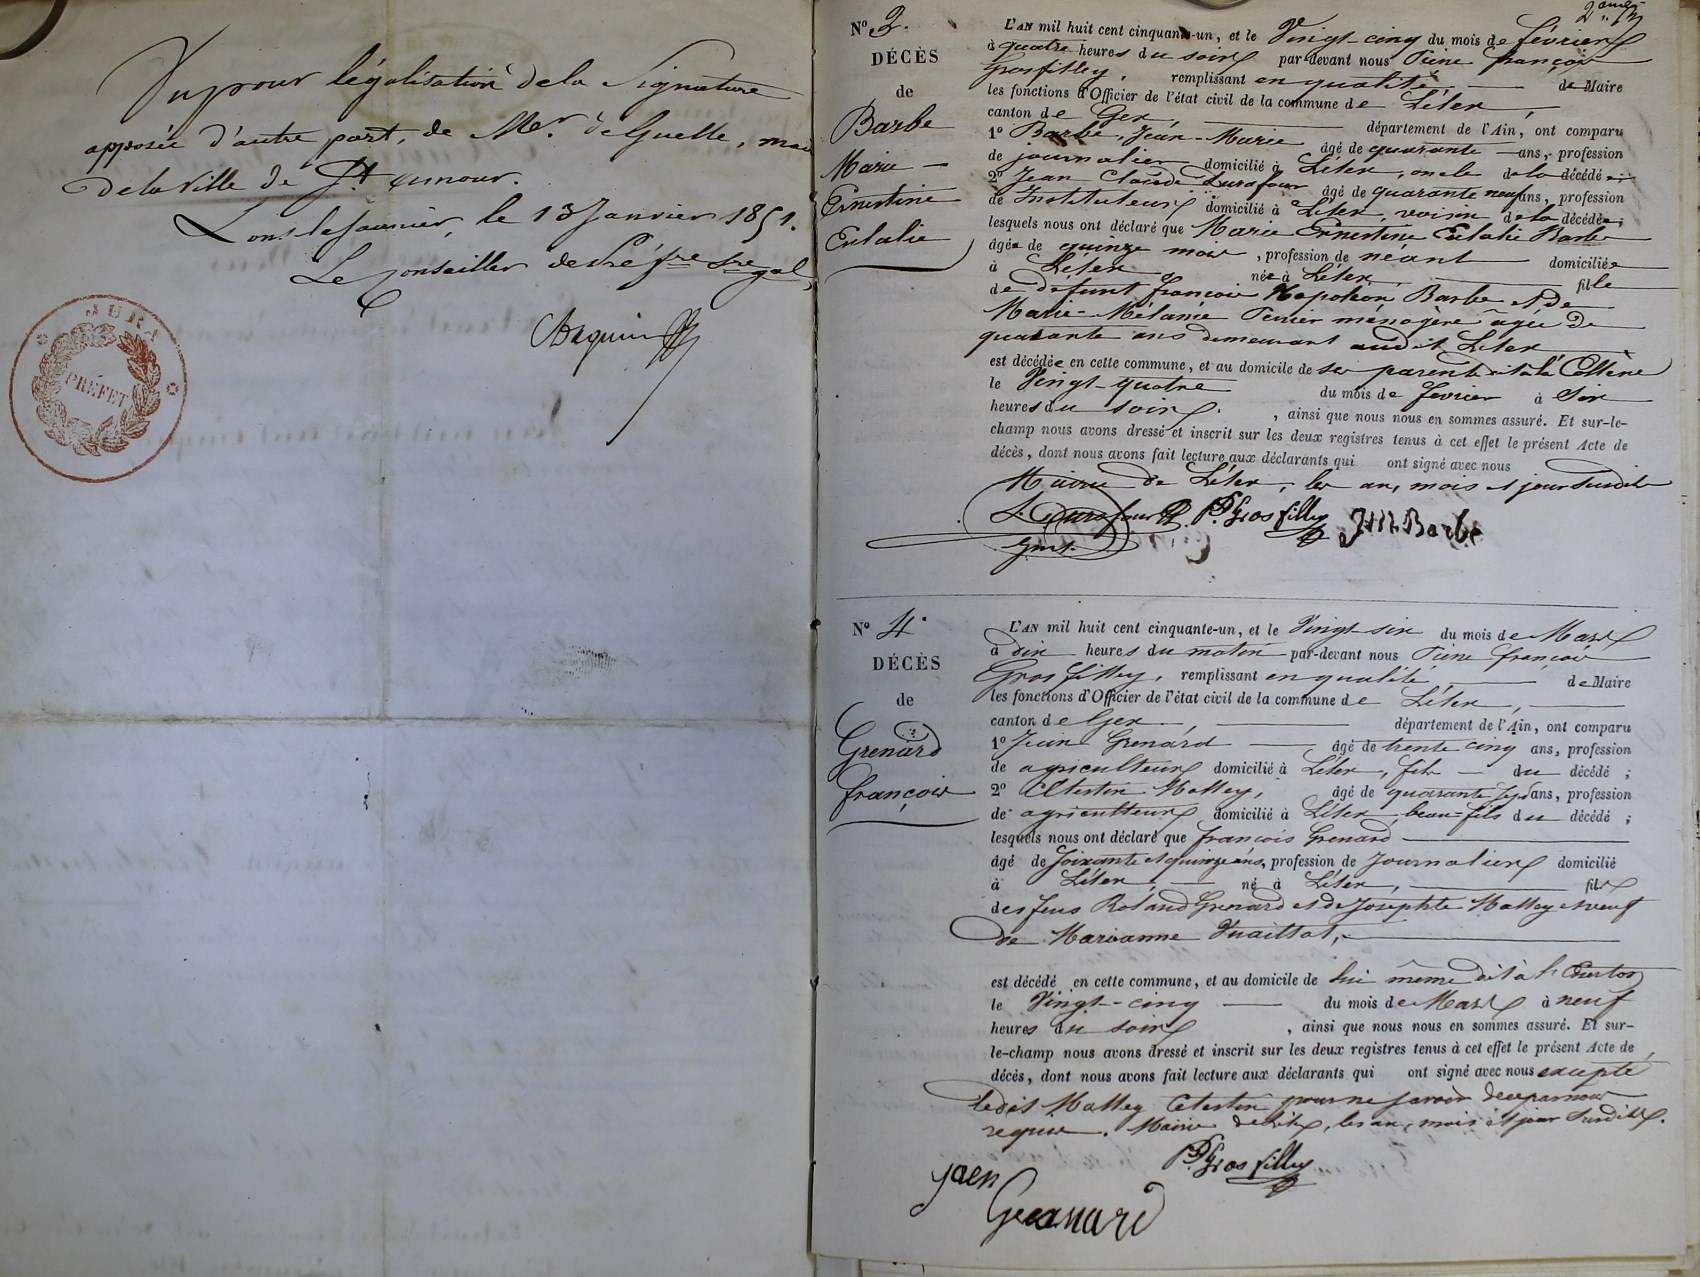 Vu pour légalisation de la Signature
apposée d'autre part, de Mr. de Guelle, mai
de la ville de St amour.
Lons le Saunier, le 13 Janvier 1851.
Le Conseiller de Préfre Sre gal,
JURA
PRÉFET
2ème
No 3.
DÉCÈS
de
Barbe
Marie
Ernestine
Eulalie
L'AN mil huit cent cinquante-un, et le Vingt-cinq du mois de février
à quatre heures du soir par-devant nous Pierre françois
Grosfilley, remplissant en qualité de Maire
les fonctions d'Officier de l'état civil de la commune de Lélex,
canton de Gex, département de l'Ain, ont comparu
1o Barbe, Jean-Marie âgé de quarante ans, profession
de journalier domicilié à Lélex, oncle de la décédée;
2o Jean Claude Durafour âgé de quarante neuf ans, profession
de Instituteur domicilié à Lélex, voisin de la décédée;
lesquels nous ont déclaré que Marie Ernestine Eulalie Barbe
âgée de quinze mois, profession de néant domiciliée
à Lélex née à Lélex, fille
de défunt françois Napoléon Barbe et de
Marie-Mélanie Perrier ménagère âgée de
quarante ans demeurant audit Lélex
est décédée en cette commune, et au domicile de ses parents dit à la
le Vingt-quatre du mois de février à Six
heures du soir, ainsi que nous nous en sommes assuré. Et sur-le-
champ nous avons dressé et inscrit sur les deux registres tenus à cet effet le présent Acte de
décès, dont nous avons fait lecture aux déclarants qui ont signé avec nous
Mairie de Lélex, les an, mois et jour susdits
Durafour P. F. Grosfilley J M Barbe
No 4.
DÉCÈS
de
Grenard
françois
L'AN mil huit cent cinquante-un, et le Vingt six du mois de Mars
à dix heures du matin par-devant nous Pierre françois
Grosfilley, remplissant en qualité de Maire
les fonctions d'Officier de l'état civil de la commune de Lélex,
canton de Gex, département de l'Ain, ont comparu
1o Jean Grenard âgé de trente cinq ans, profession
de agriculteur domicilié à Lélex, fils du décédé;
2o Célestin Mathey, âgé de quarante sept ans, profession
de agriculteur domicilié à Lélex beau-fils du décédé;
lesquels nous ont déclaré que françois Grenard
âgé de soixante et quinze ans, profession de Journalier domicilié
à Lélex né à Lélex, fils
des feus Roland Grenard et de Josephte Mathey et veuf
de Marianne
est décédé en cette commune, et au domicile de lui même dit à
le Vingt-cinq du mois de Mars à neuf
heures du soir, ainsi que nous nous en sommes assuré. Et sur-
le-champ nous avons dressé et inscrit sur les deux registres tenus à cet effet le présent Acte de
décès, dont nous avons fait lecture aux déclarants qui ont signé avec nous excepté
ledit Mathey Célestin pour ne savoir de ce par nous
requis. Mairie de Lélex, les an, mois et jour susdits.
P. F. Grosfilley
jaen
Grenard